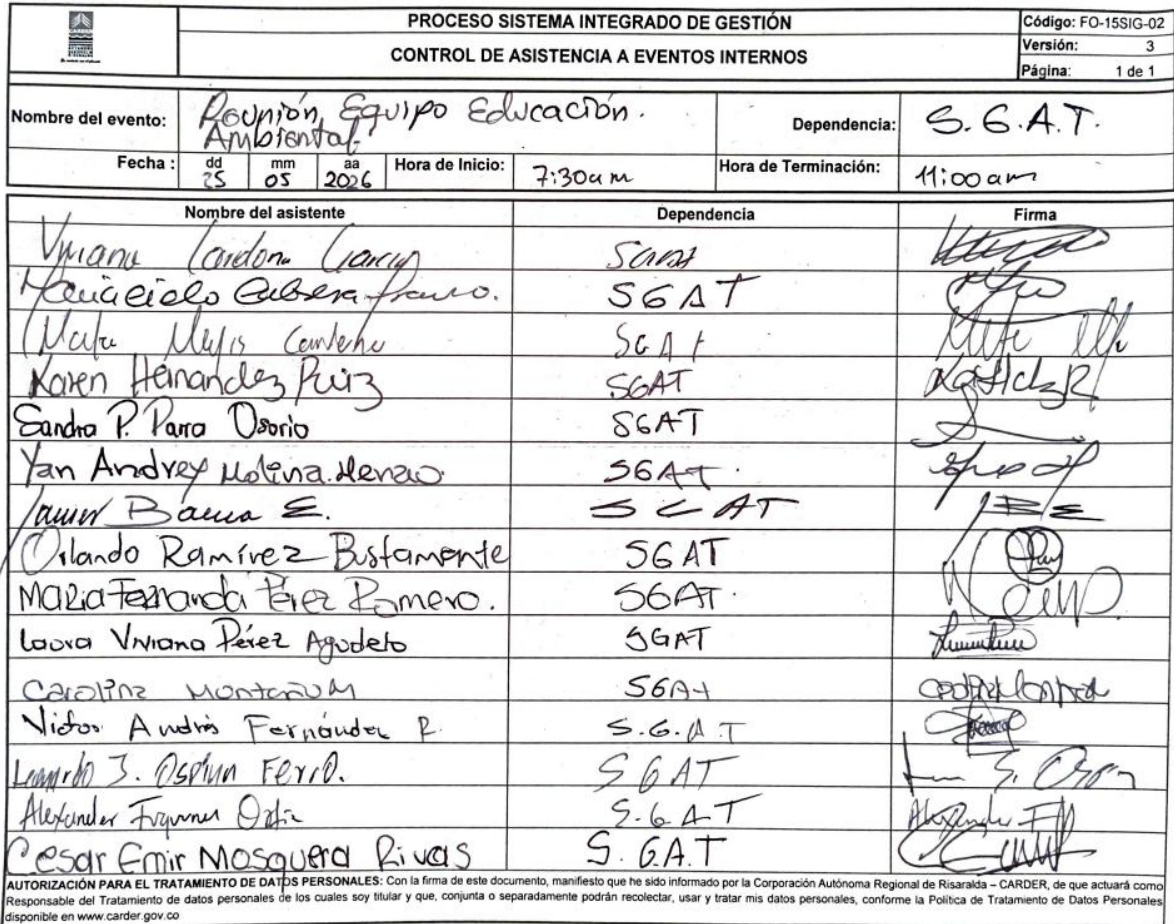 PROCESO SISTEMA INTEGRADO DE GESTIÓN
CONTROL DE ASISTENCIA A EVENTOS INTERNOS
Código: FO-15SIG-02
Versión: 3
Página: 1 de 1
Nombre del evento: Reunión Equipo Educación. Ambiental
Dependencia: S.G.A.T.
Fecha : dd 25 mm 05 aa 2026 Hora de Inicio: 7:30am Hora de Terminación: 11:00am
Nombre del asistente Dependencia Firma
Viviana Cardona García
SGAT
Cabrera Franco. SGAT
Mejía SGAT
Karen Hernandez Ruiz SGAT
Sandra P. Parra Osorio SGAT
Yan Andrey Molina Henao. SGAT.
E. SGAT
Orlando Ramírez Bustamente SGAT
Maria Fernanda Pérez Romero. SGAT.
Laura Viviana Pérez Agudelo SGAT
Carolina Montoya M SGAT
Victor Andrés Fernández R. S.G.A.T
Leonardo J. Ospina Ferro. SGAT
Alexander Ortiz S.G.A.T
Cesar Emir Mosquera Rivas S.G.A.T
AUTORIZACIÓN PARA EL TRATAMIENTO DE DATOS PERSONALES: Con la firma de este documento, manifiesto que he sido informado por la Corporación Autónoma Regional de Risaralda – CARDER, de que actuará como
Responsable del Tratamiento de datos personales de los cuales soy titular y que, conjunta o separadamente podrán recolectar, usar y tratar mis datos personales, conforme la Política de Tratamiento de Datos Personales
disponible en www.carder.gov.co